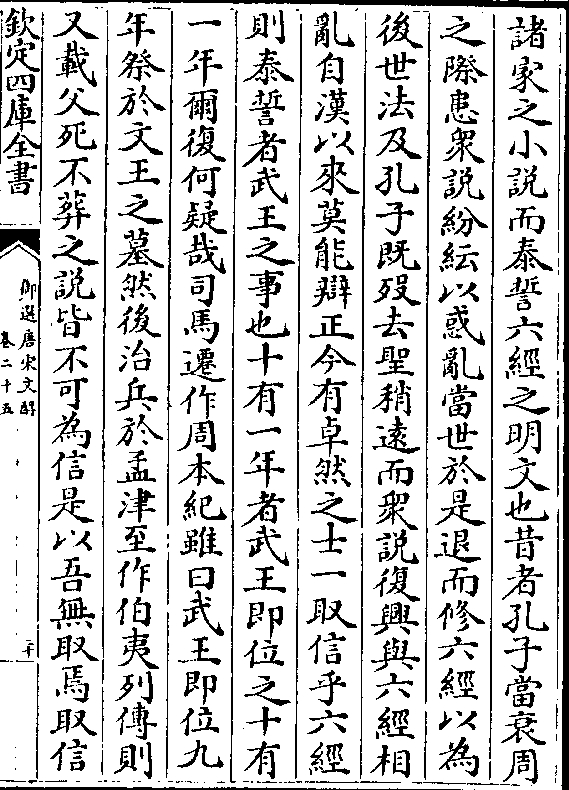 諸家之小說而泰誓六經之明文也昔者孔子當衰周
之際患衆說紛紜以惑亂當世於是退而修六經以為
後世法及孔子旣歿去聖稍遠而衆說復興與六經相
亂自漢以來莫能辯正今有卓然之士一取信乎六經
則泰誓者武王之事也十有一年者武王即位之十有
一年爾復何疑哉司馬遷作周本紀雖曰武王即位九
年祭於文王之墓然後治兵於孟津至作伯夷列傳則
又載父死不葬之說皆不可為信是以吾無取焉取信
欽定四庫全書
御選唐宋文醇
卷二十五
二十